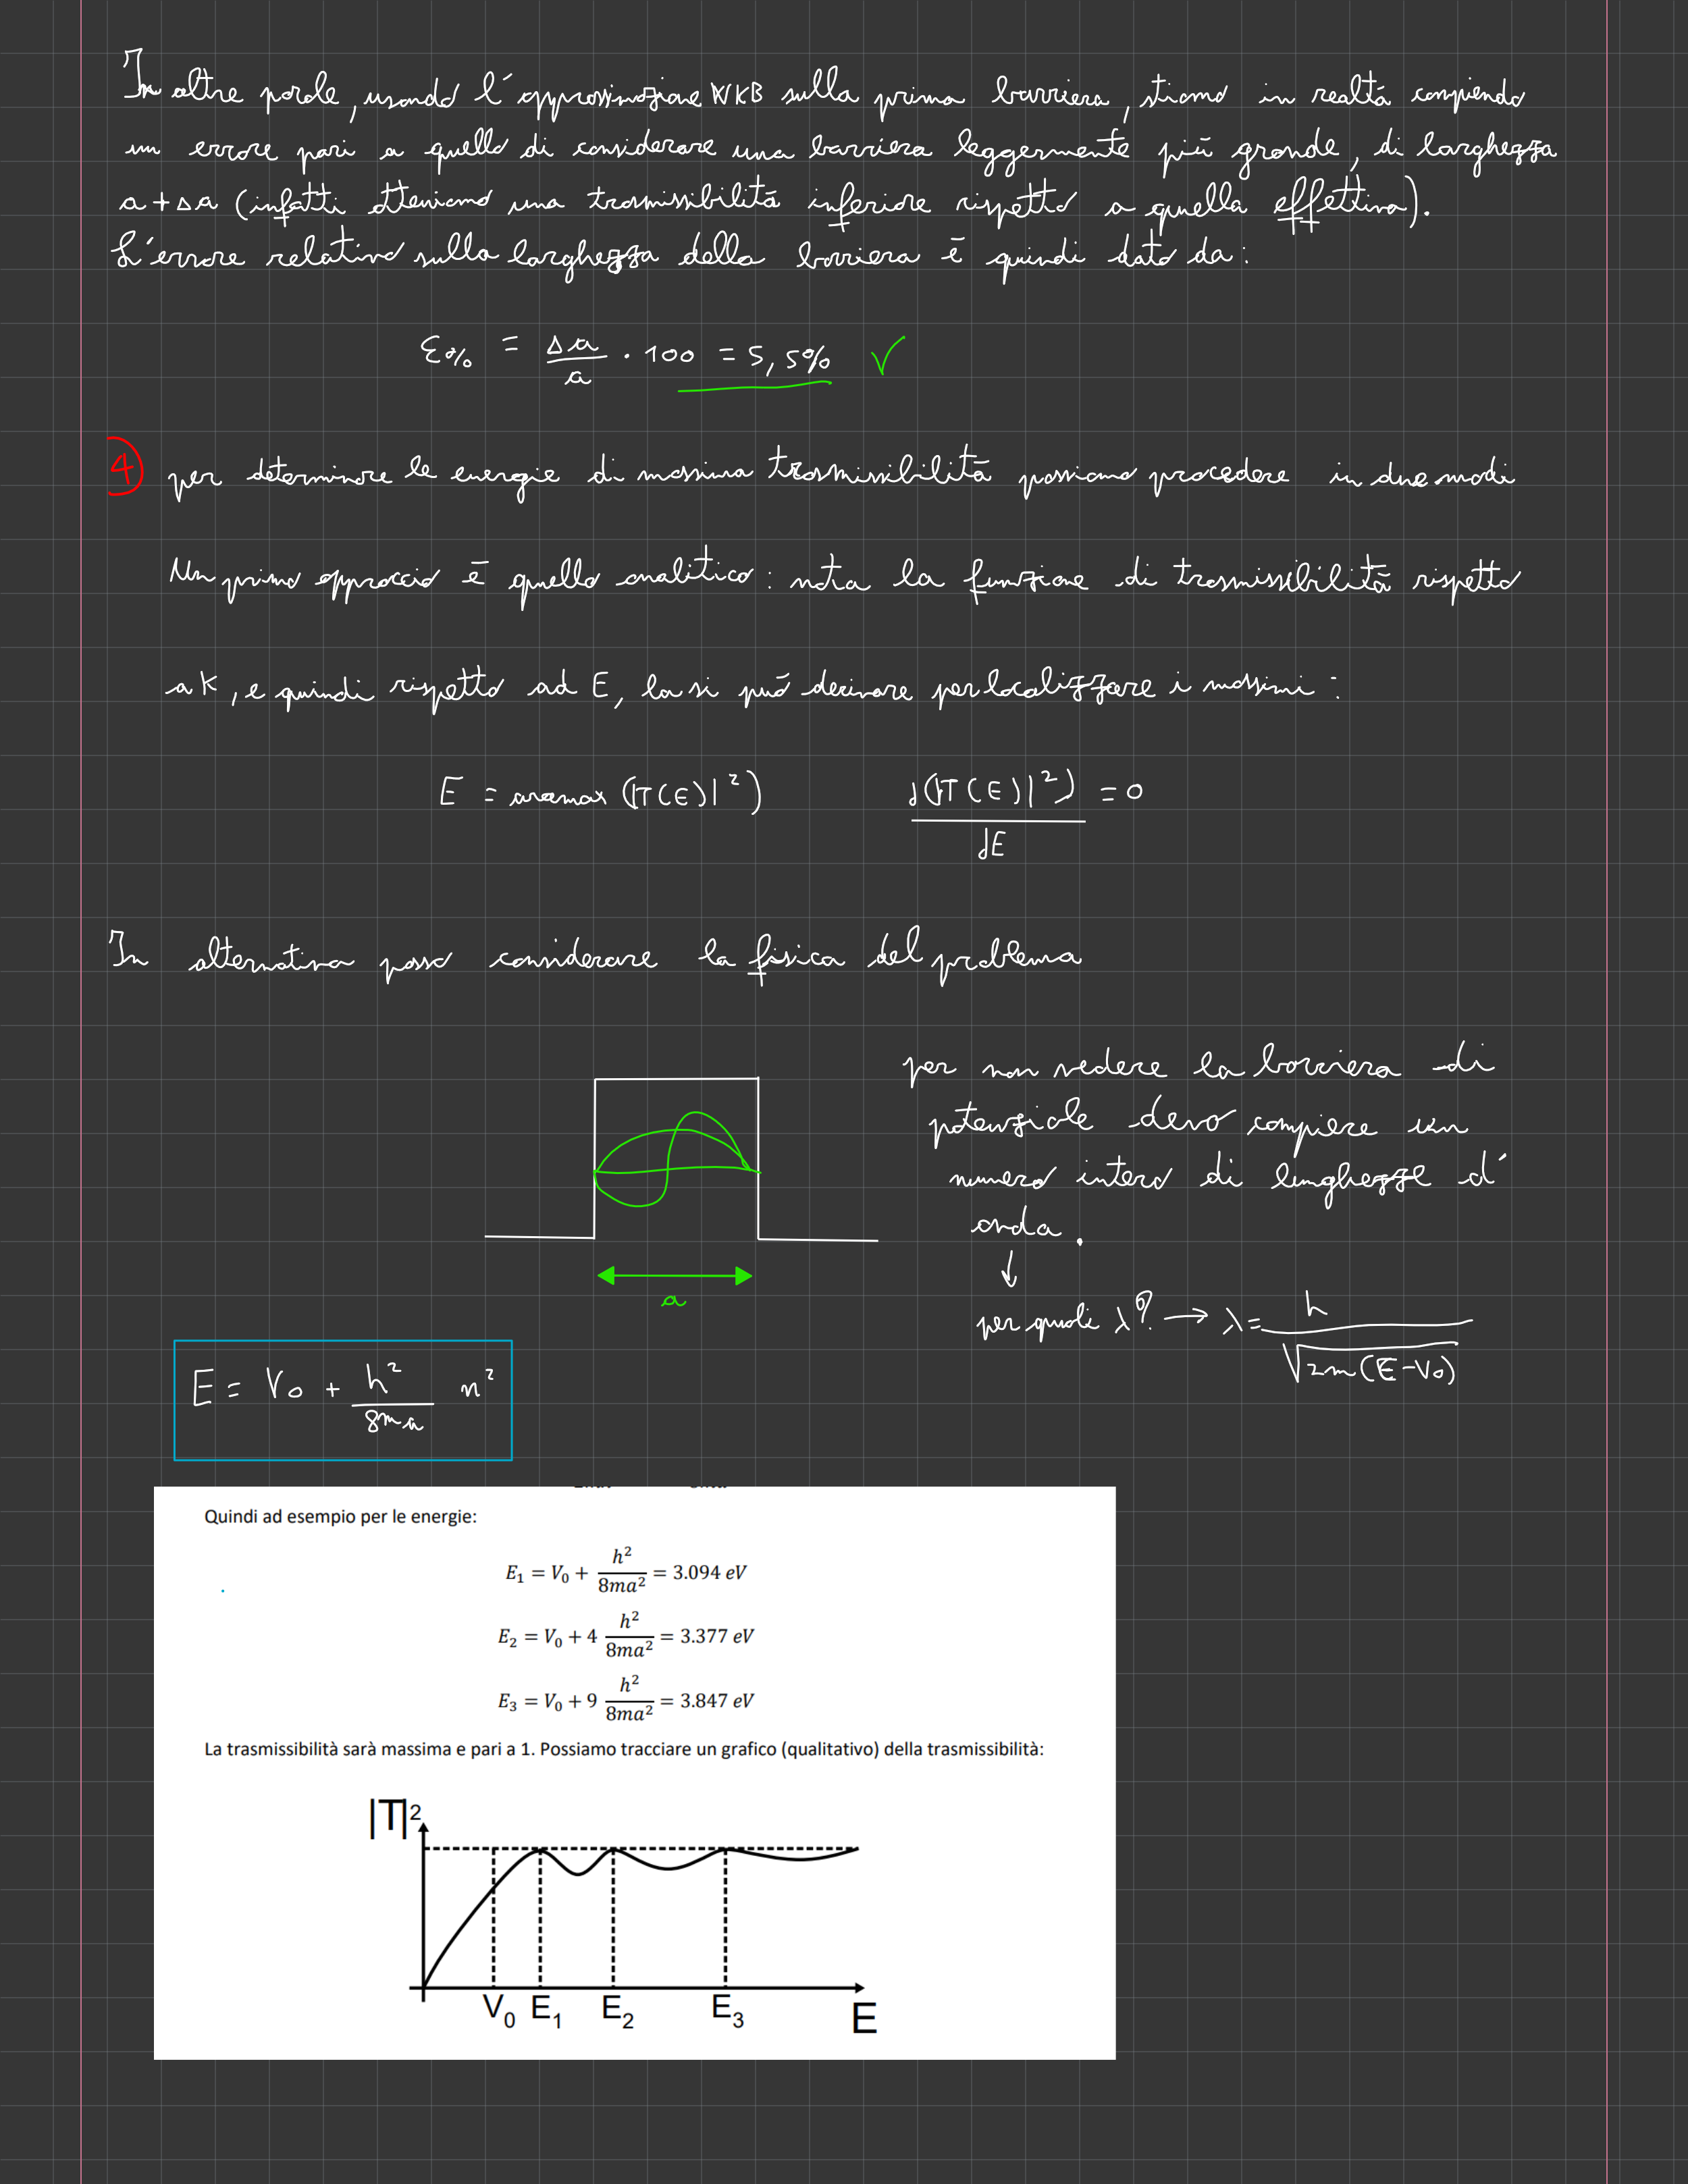 In altre parole, usando l'approssimazione WKB sulla prima barriera, stiamo in realtà compiendo
un errore pari a quello di considerare una barriera leggermente più grande, di larghezza
a + Δa (infatti otteniamo una trasmissibilità inferiore rispetto a quella effettiva).
L'errore relativo sulla larghezza della barriera è quindi dato da:
ε% = Δa/a · 100 = 5,5% ✓
4 per determinare le energie di massima trasmissibilità possiamo procedere in due modi
Un primo approccio è quello analitico: nota la funzione di trasmissibilità rispetto
a K, e quindi rispetto ad E, la si può derivare per localizzare i massimi:
E = aramax (|T(E)|²) d(|T(E)|²)/dE = 0
In alternativa posso considerare la fisica del problema
per non vedere la barriera di
potenziale devo compiere un
numero intero di lunghezze d'
onda.
↓
per quali λ? → λ = h/√2m(E-V0)
a
E = V0 + h²/8ma n²
Quindi ad esempio per le energie:
E₁ = V₀ + h²/8ma² = 3.094 eV
E₂ = V₀ + 4 h²/8ma² = 3.377 eV
E₃ = V₀ + 9 h²/8ma² = 3.847 eV
La trasmissibilità sarà massima e pari a 1. Possiamo tracciare un grafico (qualitativo) della trasmissibilità:
|T|²
V₀ E₁ E₂ E₃ E